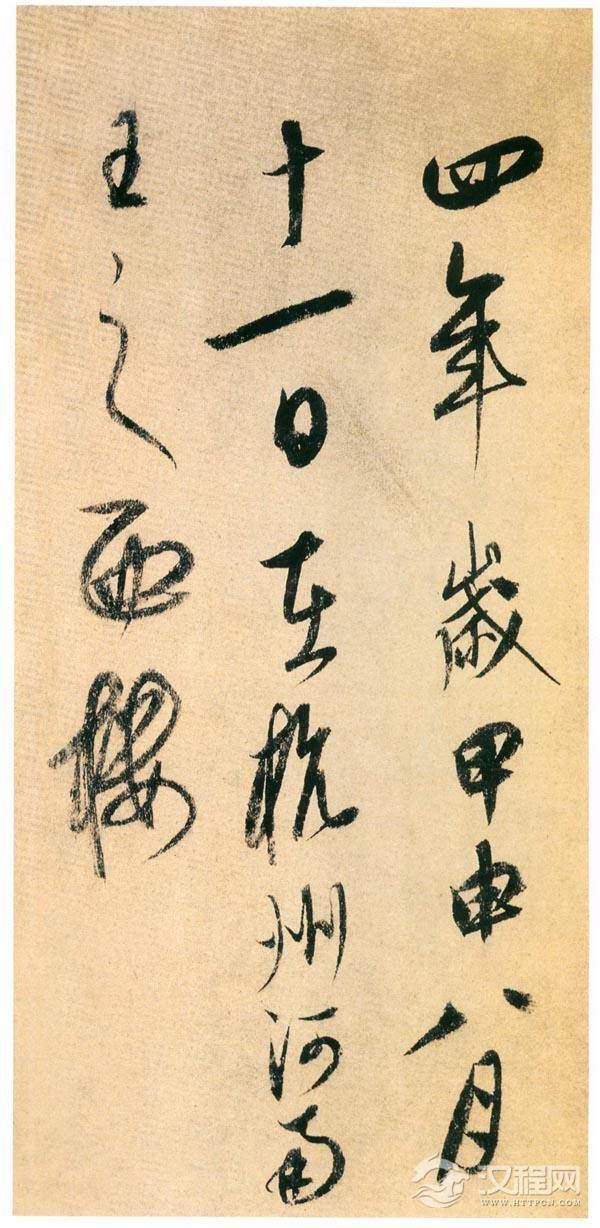 四年歲甲申八月
十一日在杭州河南
王之西樓
汉程网
WWW.HTTPCN.COM